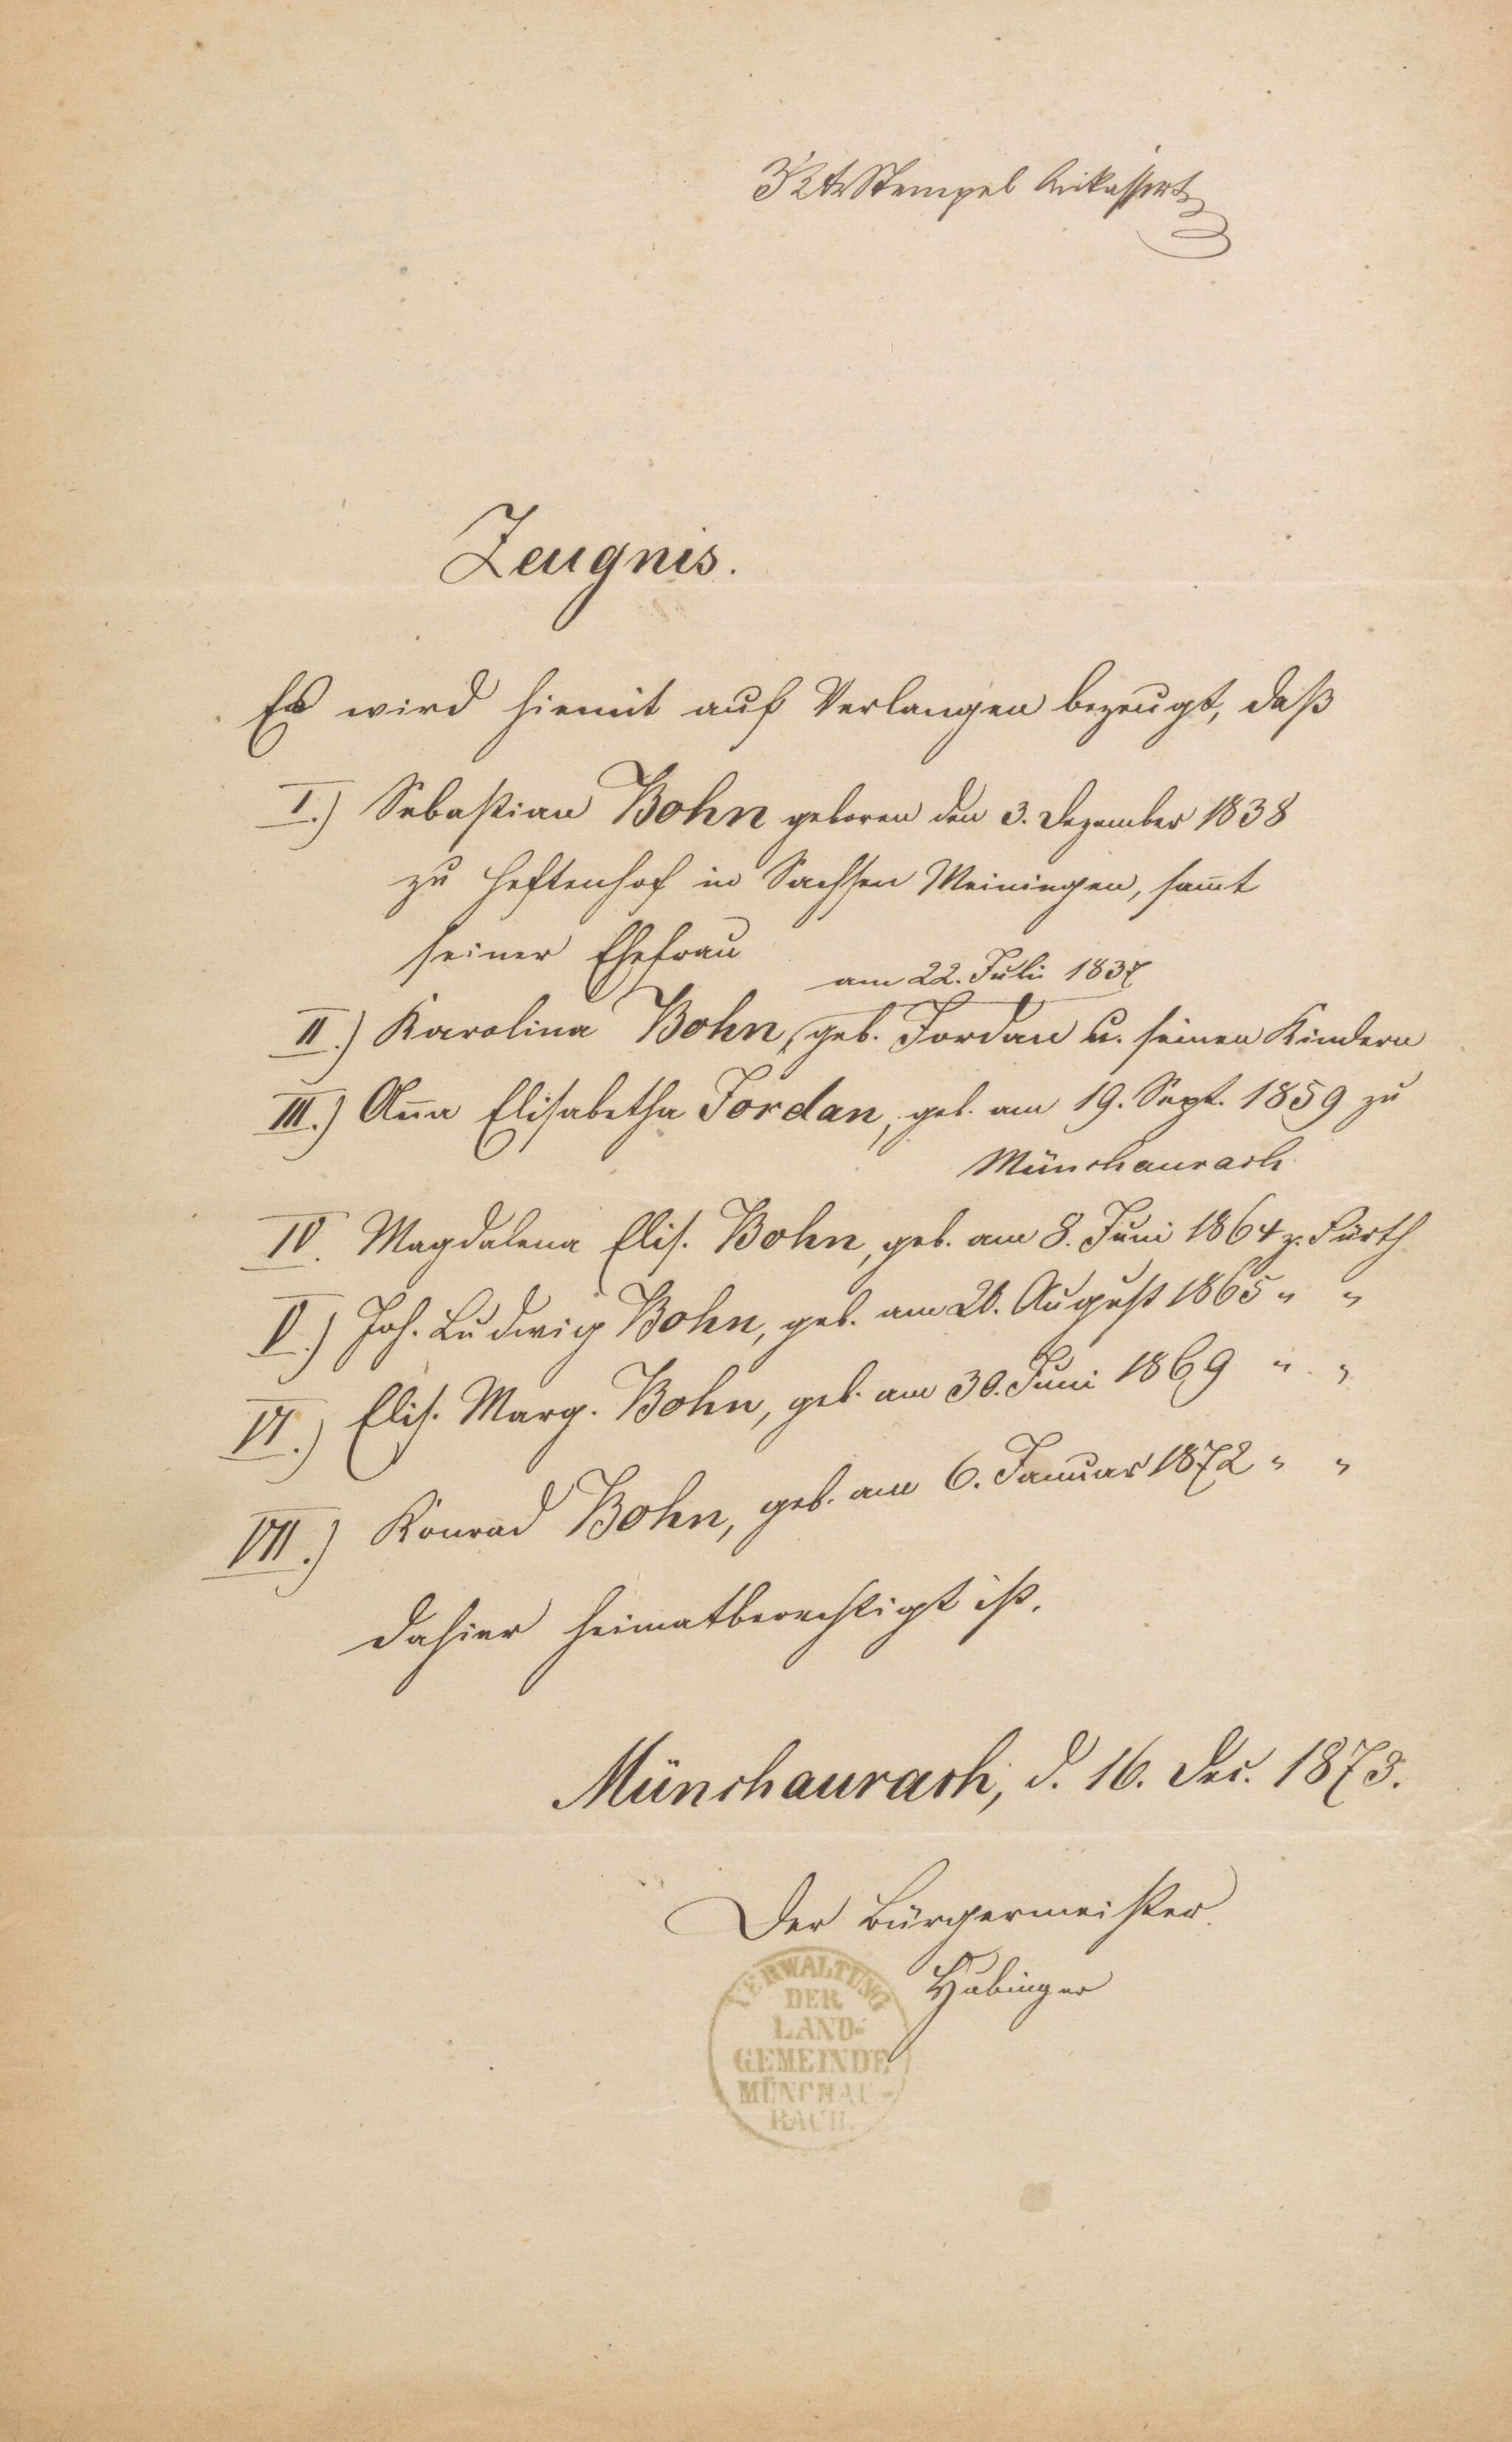 Stempel kassirt
Zeugnis.
Es wird hiemit auf Verlangen bezeugt, daß
I.) Sebastian Bohn geboren den 3. Dezember 1838
zu Heftenhof in Sachsen Meiningen, sam̅t
seiner Ehefrau
am 22. Juli 1837
II.) Karolina Bohn, geb. Jordan u. seinen Kindern
III.) An̅a Elisabetha Jordan, geb. am 19. Sept. 1859 zu
Münchaurach
IV. Magdalena Elis. Bohn, geb. am 8. Juni 1864 z. Fürth
V.) Joh. Ludwig Bohn, geb. am August 1865 " "
VI.) Elis. Marg. Bohn, geb. am 30. Juni 1869 " "
VII.) Konrad Bohn, geb. am 6. Januar 1872 " "
dahier heimatberechtigt ist.
Münchaurach, d. 16. Dec. 1873.
Der Bürgermeister
Hubinger
VERWALTUNG
DER
LAND-
GEMEINDE
MÜNCHAU-
RACH.